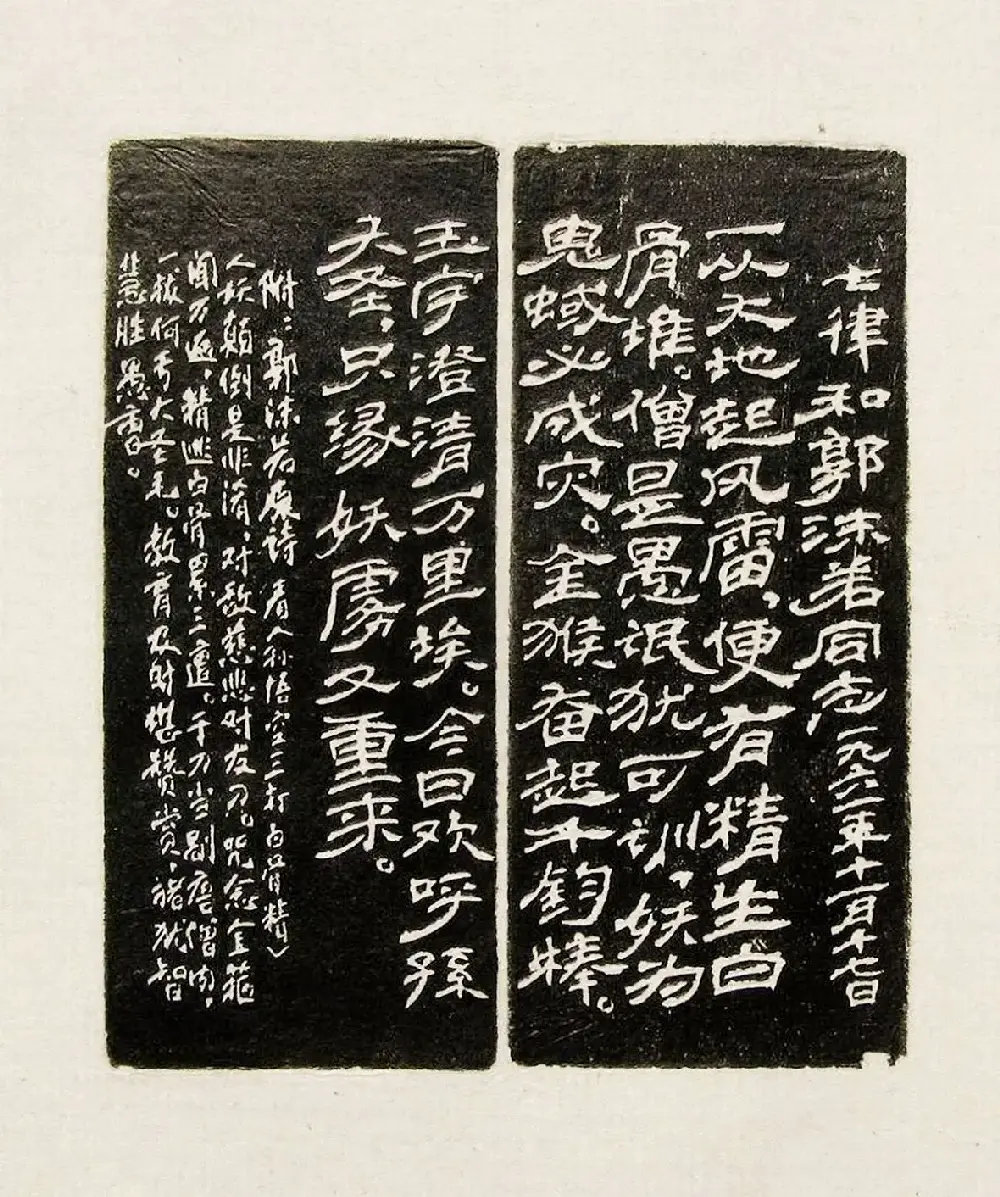 七律和郭沫若同志一九六一年十一月十七日
一从天地起风雷,便有精生白
骨堆。僧是愚氓犹可训,妖为
鬼蜮必成灾。金猴奋起千钧棒。
玉宇澄清万里埃。今日欢呼孫
大圣,只缘妖雾又重来。
附:郭沫若原詩 看〈孙悟空三打白骨精〉
人妖顛倒是非淆,对敌慈悲对友刁。咒念金箍
闻万遍,精逃白骨累三遭。千刀当剐唐僧肉,
一拔何亏大圣毛。教育及时堪赞赏,猪犹智
慧胜愚曹。